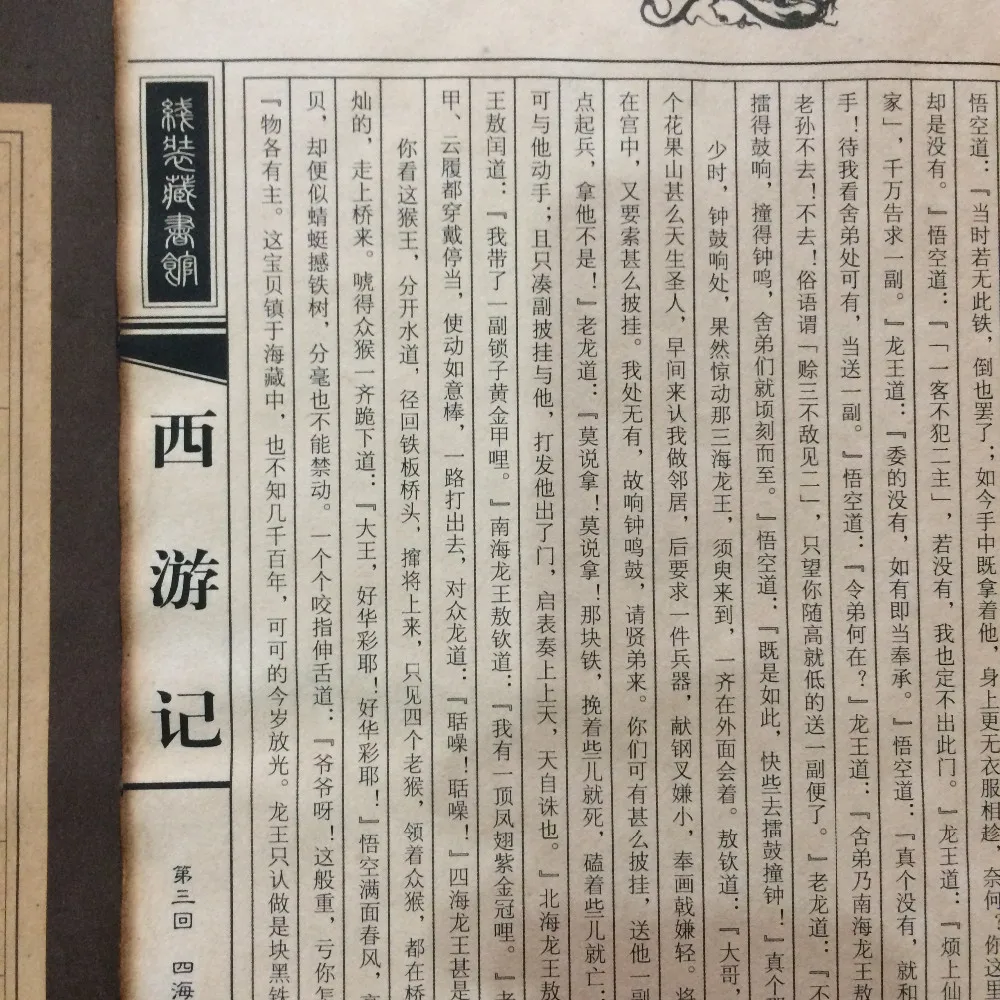 悟空道：『当时若无此铁，倒也罢了；如今手中既拿着他，身上更无衣服相趁，奈何？你这里
却是没有。』悟空道：『「一客不犯二主」，若没有，我也定不出此门。』龙王道：『烦上仙
家」，千万告求一副。』龙王道：『委的没有，如有即当奉承。』悟空道：『真个没有，就和
手！待我看舍弟处可有，当送一副。』悟空道：『令弟何在？』龙王道：『舍弟乃南海龙王敖
老孙不去！不去！俗语谓「赊三不敌见二」，只望你随高就低的送一副便了。』老龙道：『不
擂得鼓响，撞得钟鸣，舍弟们就顷刻而至。』悟空道：『既是如此，快些去擂鼓撞钟！』真个
少时，钟鼓响处，果然惊动那三海龙王，须臾来到，一齐在外面会着。敖钦道：『大哥，
个花果山甚么天生圣人，早间来认我做邻居，后要求一件兵器，献钢叉嫌小，奉画戟嫌轻。将
在宫中，又要索甚么披挂。我处无有，故响钟鸣鼓，请贤弟来。你们可有甚么披挂，送他一副
点起兵，拿他不是！』老龙道：『莫说拿！莫说拿！那块铁，挽着些儿就死，磕着些儿就亡；
可与他动手；且只凑副披挂与他，打发他出了门，启表奏上上天，天自诛也。』北海龙王敖
王敖闰道：『我带了一副锁子黄金甲哩。』南海龙王敖钦道：『我有一顶凤翅紫金冠哩。』老
甲、云履都穿戴停当，使动如意棒，一路打出去，对众龙道：『聒噪！聒噪！』四海龙王甚是
你看这猴王，分开水道，径回铁板桥头，撺将上来，只见四个老猴，领着众猴，都在桥
灿的，走上桥来。唬得众猴一齐跪下道：『大王，好华彩耶！好华彩耶！』悟空满面春风，
贝，却便似蜻蜓撼铁树，分毫也不能禁动。一个个咬指伸舌道：『爷爷呀！这般重，亏你怎
『物各有主。这宝贝镇于海藏中，也不知几千百年，可可的今岁放光。龙王只认做是块黑铁
綫装藏書館
西游记
第三回 四海